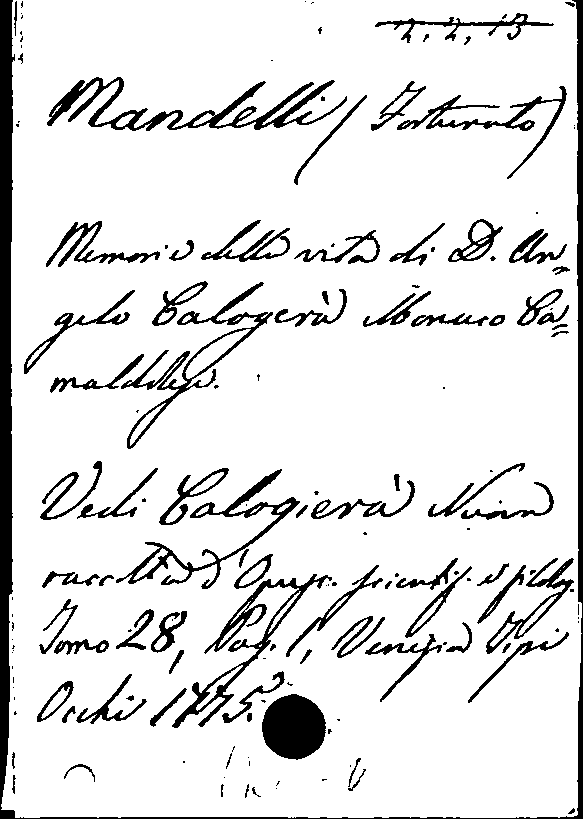 2. 2, 13
Mandelli (Fortunato)
Memorie della vita di D. An=
gelo Calogerà Monaco Ca=
maldolese.
Vedi Calogierà Nuova
raccolta d'Opusc. scientif. e filolog.
Tomo 28, Pag. 1, Venezia Tipi
Occhi 1775.